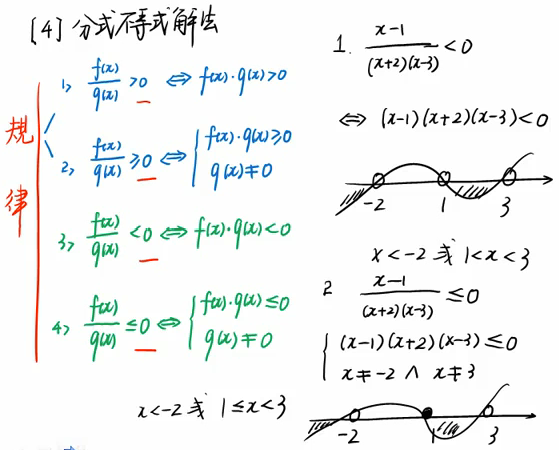 [4] 分式不等式解法
规律
1> f(x)/g(x) >0 ⇔ f(x)·g(x)>0
2> f(x)/g(x) ≥0 ⇔ { f(x)·g(x)≥0
g(x)≠0
3> f(x)/g(x) <0 ⇔ f(x)·g(x)<0
4> f(x)/g(x) ≤0 ⇔ { f(x)·g(x)≤0
g(x)≠0
1. x-1/(x+2)(x-3) <0
⇔ (x-1)(x+2)(x-3)<0
-2 1 3
x<-2 或 1<x<3
2 x-1/(x+2)(x-3) ≤0
{ (x-1)(x+2)(x-3)≤0
x≠-2 ∧ x≠3
-2 1 3
x<-2 或 1≤x<3